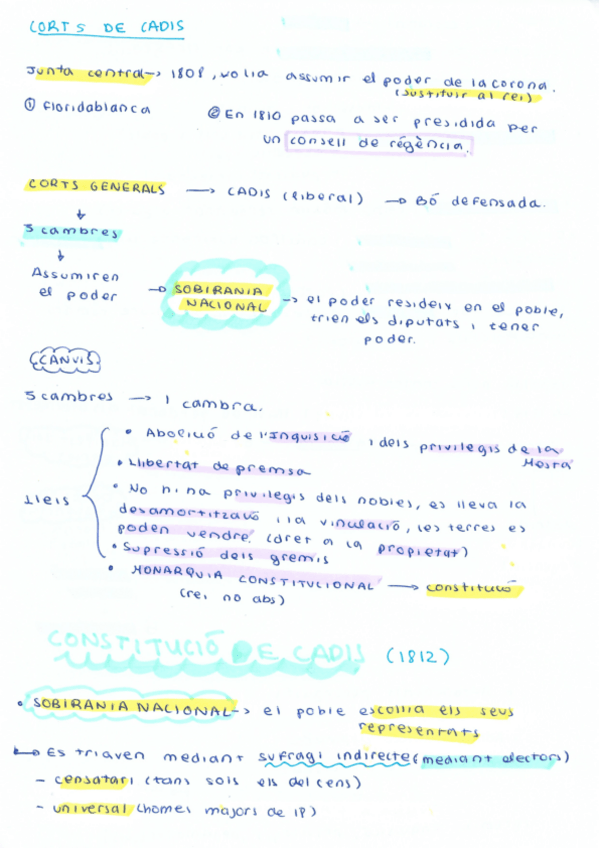 CORTS DE CADIS
Junta central → 1808, volia assumir el poder de la corona.
(sustituir al rei)
① Floridablanca
② En 1810 passa a ser presidida per
un consell de régència.
CORTS GENERALS → CADIS (liberal) → Bó defensada.
3 cambres
Assumiren
el poder
→ SOBIRANIA
NACIONAL
→ el poder resideix en el poble,
trien els diputats i tener
poder.
CANVIS
3 cambres → 1 cambra.
Lleis
• Abolició de l'Inquisició i dels privilegis de la
Mesta
• Llibertat de premsa
• No hi ha privilegis dels nobles, es lleva la
desamortització i la vinculació, les terres es
poden vendre. (dret a la propietat)
• Supressió dels gremis
• MONARQUIA CONSTITUCIONAL → constitució
(rei no abs)
CONSTITUCIÓ DE CADIS (1812)
• SOBIRANIA NACIONAL → el poble escollia els seus
representats
↳ Es triaven mediant sufragi indirecte (mediant electors)
- censatari (tans sols els del cens)
- universal (homes majors de 18)